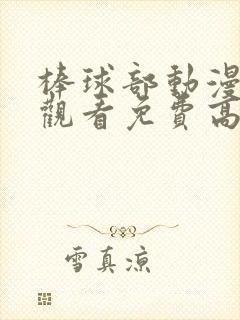 棒球部動漫
觀看免費高
雪真涼